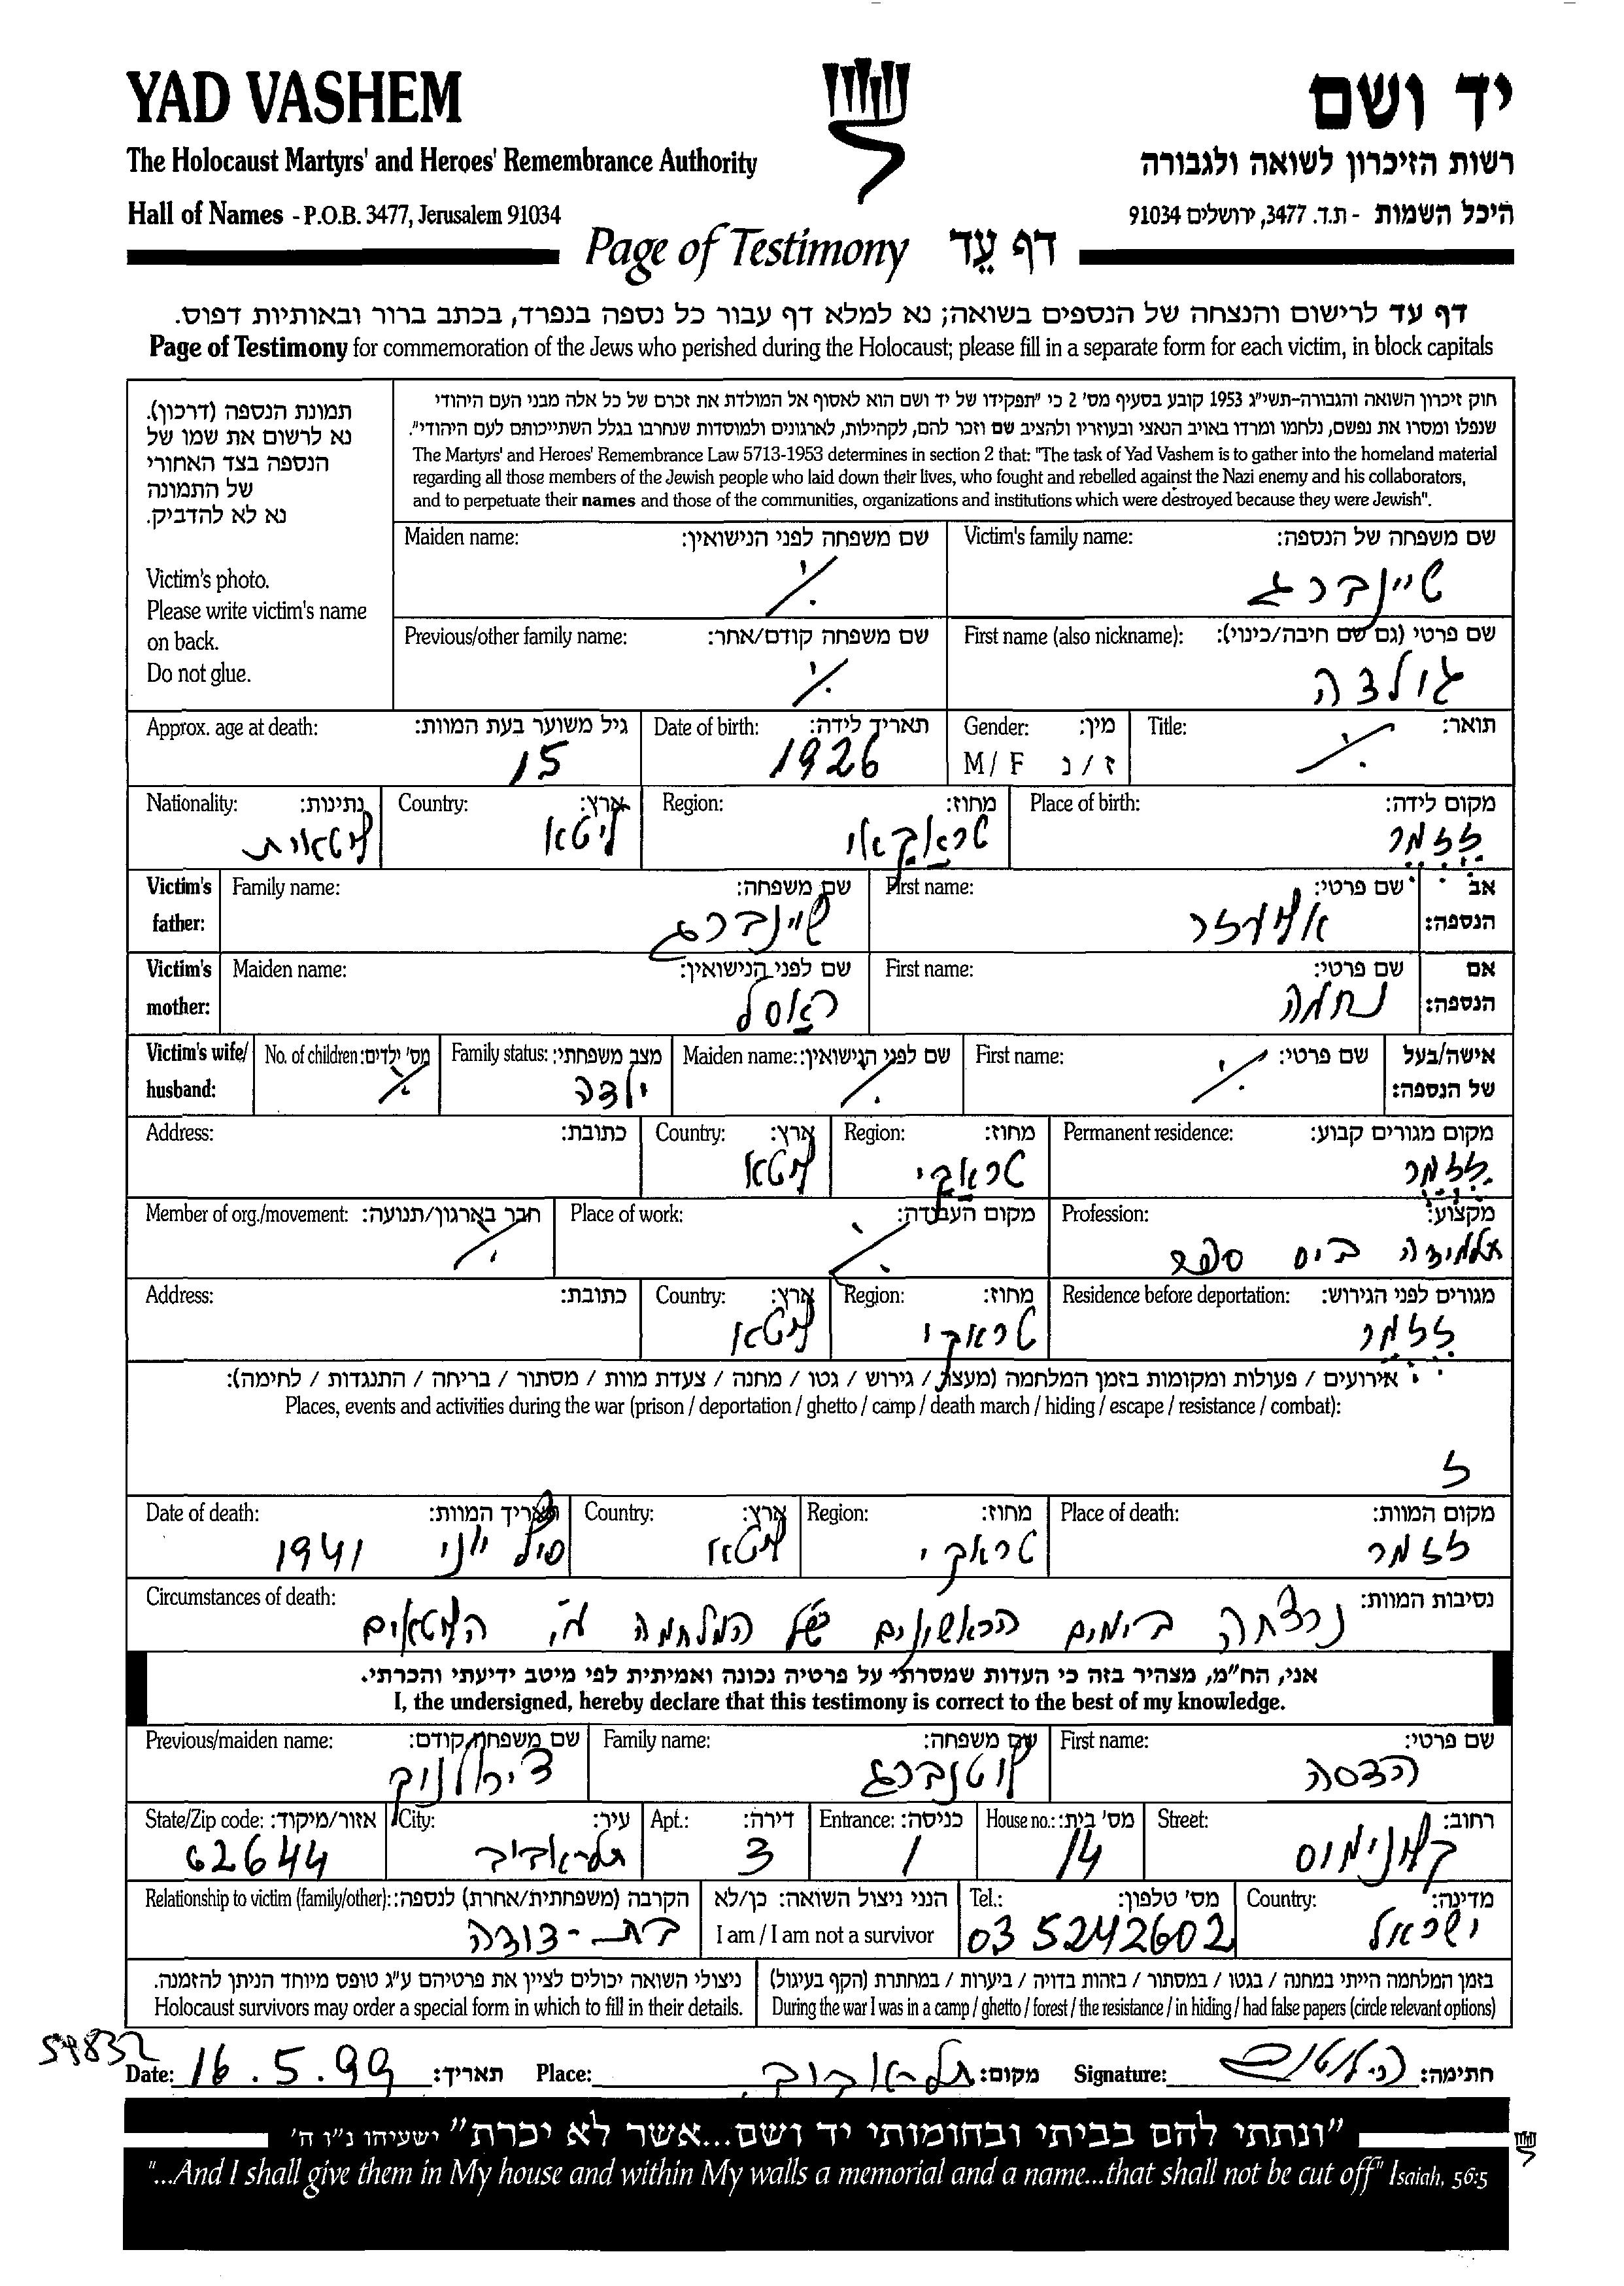 YAD VASHEM
יד ושם
The Holocaust Martyrs' and Heroes' Remembrance Authority
רשות הזיכרון לשואה ולגבורה
Hall of Names - P.O.B. 3477, Jerusalem 91034
היכל השמות - ת.ד. 3477, ירושלים 91034
Page of Testimony דף עֵד
דף עד לרישום והנצחה של הנספים בשואה; נא למלא דף עבור כל נספה בנפרד, בכתב ברור ובאותיות דפוס.
Page of Testimony for commemoration of the Jews who perished during the Holocaust; please fill in a separate form for each victim, in block capitals
תמונת הנספה (דרכון).
נא לרשום את שמו של
הנספה בצד האחורי
של התמונה
נא לא להדביק.
Victim's photo.
Please write victim's name
on back.
Do not glue.
חוק זיכרון השואה והגבורה-תשי"ג 1953 קובע בסעיף מס' 2 כי "תפקידו של יד ושם הוא לאסוף אל המולדת את זכרם של כל אלה מבני העם היהודי
שנפלו ומסרו את נפשם, נלחמו ומרדו באויב הנאצי ובעוזריו ולהציב שם וזכר להם, לקהילות, לארגונים ולמוסדות שנחרבו בגלל השתייכותם לעם היהודי".
The Martyrs' and Heroes' Remembrance Law 5713-1953 determines in section 2 that: "The task of Yad Vashem is to gather into the homeland material
regarding all those members of the Jewish people who laid down their lives, who fought and rebelled against the Nazi enemy and his collaborators,
and to perpetuate their names and those of the communities, organizations and institutions which were destroyed because they were Jewish".
Victim's family name: שם משפחה של הנספה:
שיינברג
Maiden name: שם משפחה לפני הנישואין:
First name (also nickname): שם פרטי (גם שם חיבה/כינוי):
גולדה
Previous/other family name: שם משפחה קודם/אחר:
Title: תואר:
Gender: מין:
M / F ז / נ
Date of birth: תאריך לידה:
1926
Approx. age at death: גיל משוער בעת המוות:
15
Place of birth: מקום לידה:
זזמר
Region: מחוז:
טראקאי
Country: ארץ:
ליטא
Nationality: נתינות:
ליטאית
Victim's father: אב הנספה:
First name: שם פרטי:
אליעזר
Family name: שם משפחה:
שיינברג
Victim's mother: אם הנספה:
First name: שם פרטי:
נחמה
Maiden name: שם לפני הנישואין:
ראסל
Victim's wife/ husband: אישה/בעל של הנספה:
First name: שם פרטי:
Maiden name: שם לפני הנישואין:
Family status: מצב משפחתי:
ילדה
No. of children: מס' ילדים:
Permanent residence: מקום מגורים קבוע:
זזמר
Region: מחוז:
טראקי
Country: ארץ:
ליטא
Address: כתובת:
Profession: מקצוע:
תלמידה בית ספר
Place of work: מקום העבודה:
Member of org./movement: חבר בארגון/תנועה:
Residence before deportation: מגורים לפני הגירוש:
זזמר
Region: מחוז:
טראקי
Country: ארץ:
ליטא
Address: כתובת:
אירועים / פעולות ומקומות בזמן המלחמה (מעצר / גירוש / גטו / מחנה / צעדת מוות / מסתור / בריחה / התנגדות / לחימה):
Places, events and activities during the war (prison / deportation / ghetto / camp / death march / hiding / escape / resistance / combat):
Place of death: מקום המוות:
זזמר
Region: מחוז:
טראקי
Country: ארץ:
ליטא
Date of death: תאריך המוות:
סוף יוני 1941
Circumstances of death: נסיבות המוות:
נרצחה בימים הראשונים של המלחמה ע"י הליטאים
אני, הח"מ, מצהיר בזה כי העדות שמסרתי על פרטיה נכונה ואמיתית לפי מיטב ידיעתי והכרתי.
I, the undersigned, hereby declare that this testimony is correct to the best of my knowledge.
First name: שם פרטי:
הדסה
Family name: שם משפחה:
לוטנברג
Previous/maiden name: שם משפחה קודם:
Street: רחוב:
קלונימוס
House no.: מס' בית:
14
Entrance: כניסה:
1
Apt.: דירה:
3
City: עיר:
תל-אביב
State/Zip code: אזור/מיקוד:
62644
Country: מדינה:
ישראל
Tel.: מס' טלפון:
03 5242602
הנני ניצול השואה: כן/לא
I am / I am not a survivor
Relationship to victim (family/other): הקרבה (משפחתית/אחרת) לנספה:
בת-דודה
בזמן המלחמה הייתי במחנה / בגטו / במסתור / בזהות בדויה / ביערות / במחתרת (הקף בעיגול)
During the war I was in a camp / ghetto / forest / the resistance / in hiding / had false papers (circle relevant options)
ניצולי השואה יכולים לציין את פרטיהם ע"ג טופס מיוחד הניתן להזמנה.
Holocaust survivors may order a special form in which to fill in their details.
54832
Date: 16.5.99 תאריך: Place: תל-אביב מקום: Signature: חתימה:
"ונתתי להם בביתי ובחומותי יד ושם...אשר לא יכרת" ישעיהו נ"ו ה'
"...And I shall give them in My house and within My walls a memorial and a name...that shall not be cut off" Isaiah, 56:5